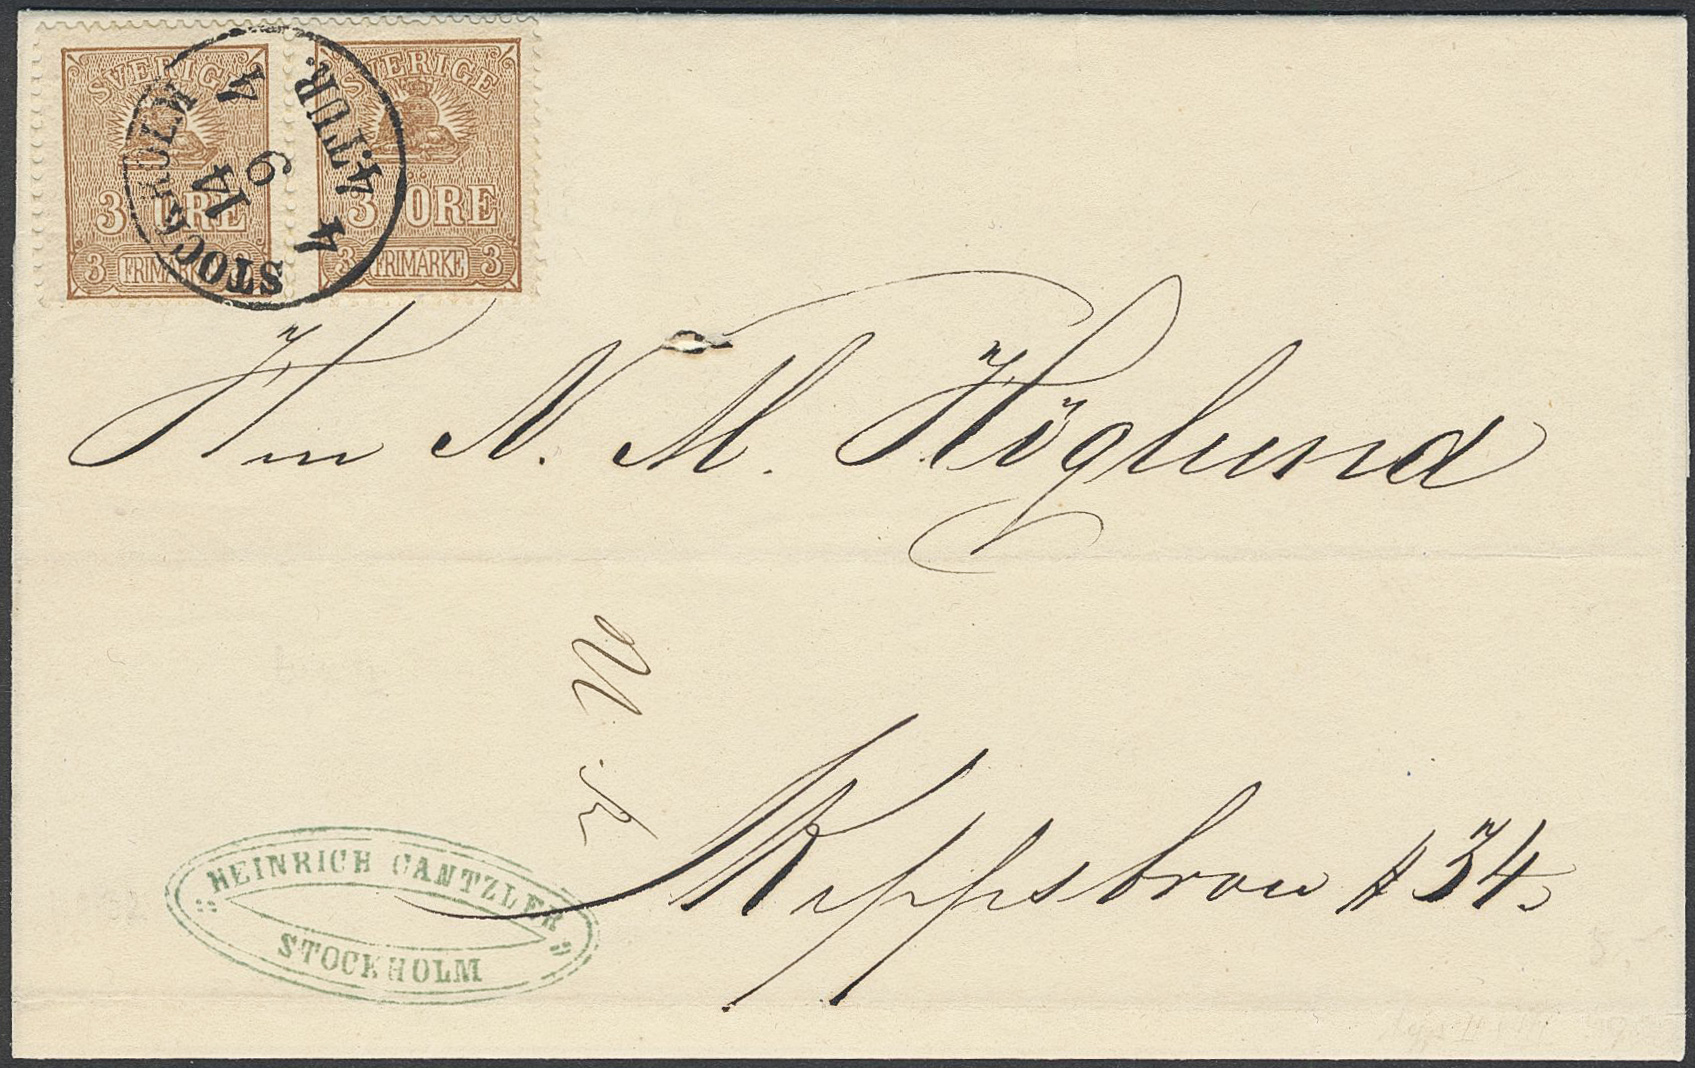 SVERIGE
3 ÖRE
3 FRIMÄRKE
SVERIGE
3 ÖRE
3 FRIMÄRKE 3
STOCKHOLM
4
9
14
4 TUR.
4
Hrr N. M. Höglund
Skeppsbron # 34
HEINRICH CANTZLER
STOCKHOLM